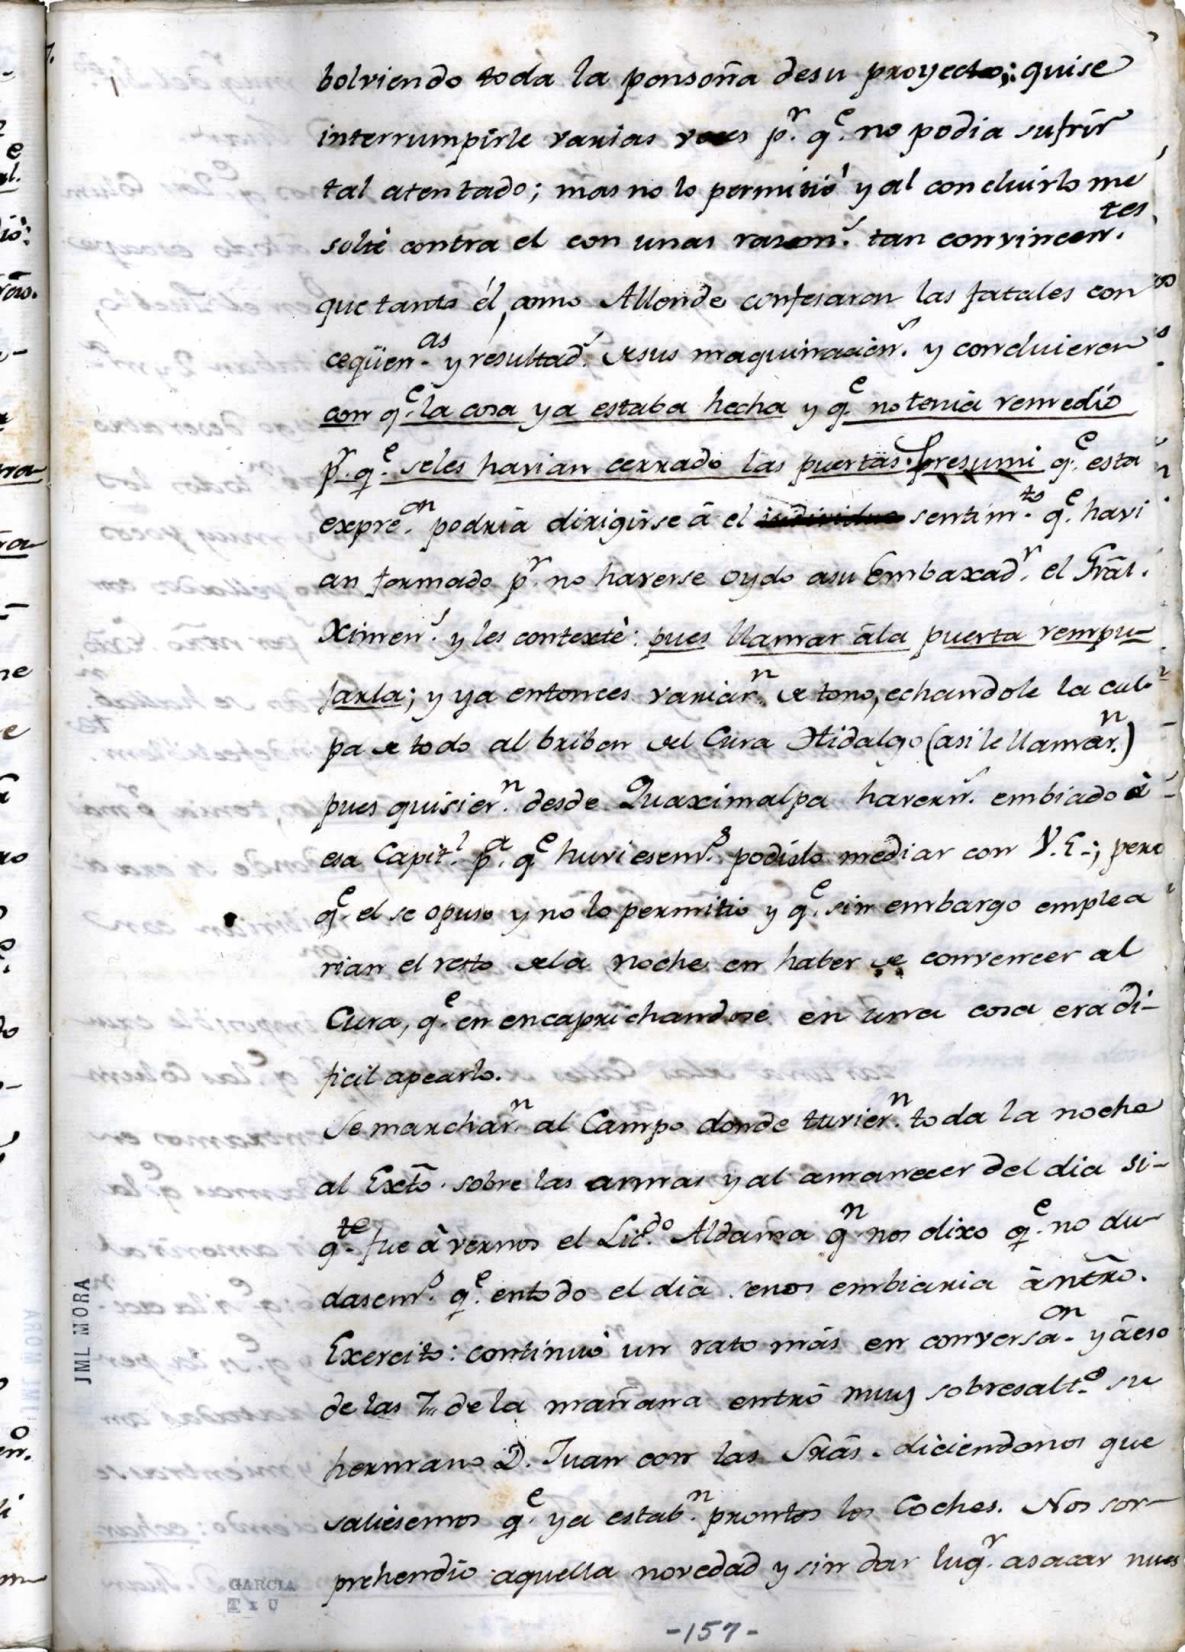 bolviendo toda la ponsoña desu proyecto; quise
interrumpirle varias veces pʳ. qᵉ. no podia sufrir
tal atentado; mas no lo permitió y al concluirlo me
solté contra el con unas razonˢ. tan convincenᵗᵉˢ.
que tanto él, como Allende confesaron las fatales con
ceqüenᵃˢ y resultadˢ. de sus maquinacionˢ. y concluieron
con qᵉ. la cosa ya estaba hecha y qᵉ. no tenia remedio
pʳ. qᵉ. seles havian cerrado las puertas. Presumi qᵉ. esta
expreᵒⁿ. podria dirigirse á el individuo sentimᵗᵒ. qᵉ. havi
an formado pʳ. no haverse oydo asu Embaxadʳ. el Grãl.
Ximenˢ. y les contexté: pues llamar âla puerta rempu-
jarla; y ya entonces variarⁿ. de tono, echandole la cul-
pa de todo al bribon del Cura Hidalgo (asi le llamarⁿ.)
pues quisierⁿ. desde Quaximalpa havernˢ. embiado á
esa Capitˡ. pᵃ. qᵉ huviesemˢ. podido mediar con V.E.; pero
qᵉ. el se opuso y no lo permitio y qᵉ. sin embargo emplea
rian el resto dela noche en haber de convencer al
Cura, qᵉ. en encaprichandose en una cosa era di-
ficil apearlo.
Se marcharⁿ. al Campo donde tuvierⁿ. toda la noche
al Exᵗõ. sobre las armas y al amanecer del dia si-
gᵗᵉ. fue á vernos el Licᵈᵒ. Aldama qⁿ. nos dixo qᵉ. no du-
dasemˢ. qᵉ. entodo el dia senos embiaria á ntr̃o.
Exercito: continuó un rato más en conversaᵒⁿ. y áeso
de las 7„ de la mañana entró muy sobresaltᵒ. su
hermano D. Juan con las Srãs. diciendonos que
saliesemos qᵉ. ya estabⁿ. prontos los Coches. Nos sor-
prehendió aquella novedad y sin dar lugʳ. asacar nues
JML MORA
GARCIA
-157-